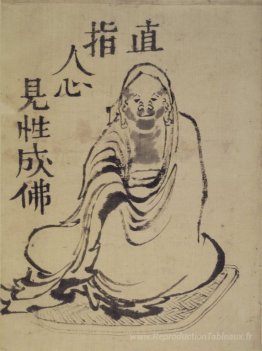 直指
人心
見性成佛
www.ReproductionTableaux.fr